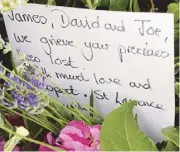 James, David and Joe,
we grieve your precious
loss lost.
with much love and
support. St Laurence